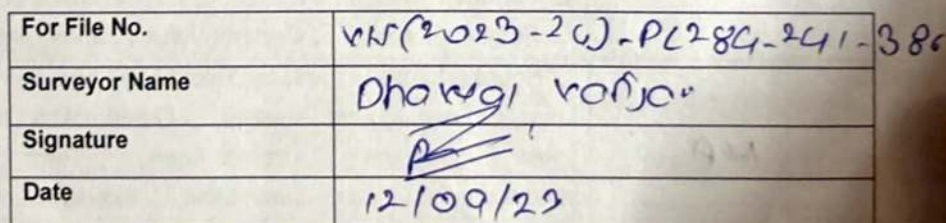 For File No. VIS(2023-24)-PL284-241-386
Surveyor Name Dhawal Vanjari
Signature
Date 12/09/23